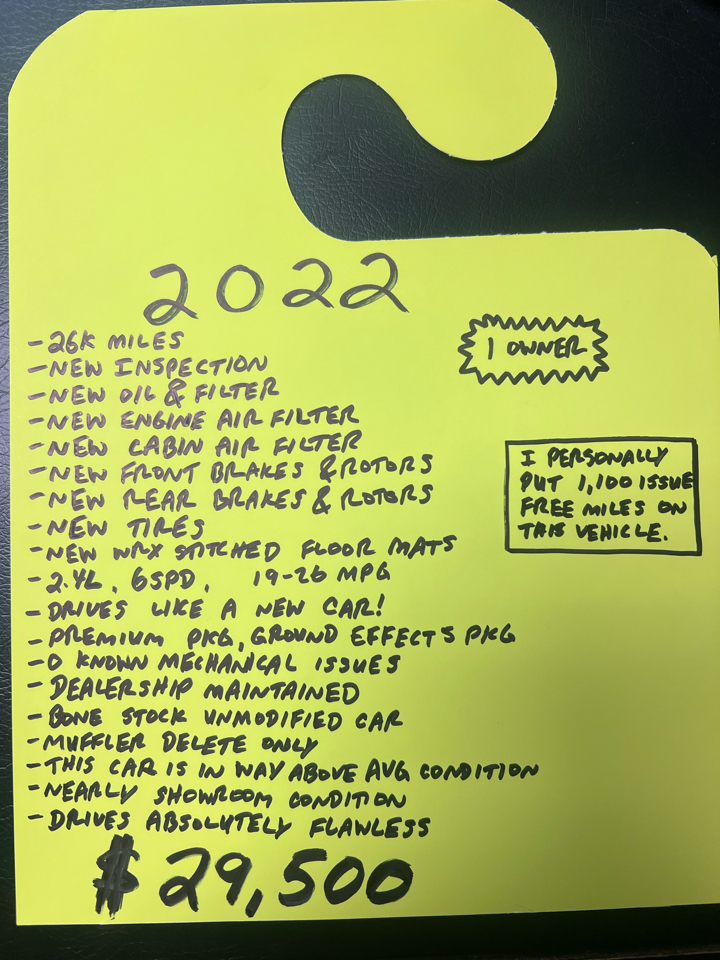 2022
-26K MILES
-NEW INSPECTION
-NEW OIL & FILTER
-NEW ENGINE AIR FILTER
-NEW CABIN AIR FILTER
-NEW FRONT BRAKES & ROTORS
-NEW REAR BRAKES & ROTORS
-NEW TIRES
-NEW WRX STITCHED FLOOR MATS
-2.4L, 6SPD, 19-26 MPG
-DRIVES LIKE A NEW CAR!
-PREMIUM PKG, GROUND EFFECT'S PKG
-0 KNOWN MECHANICAL ISSUES
-DEALERSHIP MAINTAINED
-BONE STOCK UNMODIFIED CAR
-MUFFLER DELETE ONLY
-THIS CAR IS IN WAY ABOVE AVG CONDITION
-NEARLY SHOWROOM CONDITION
-DRIVES ABSOLUTELY FLAWLESS
$29,500
1 OWNER
I PERSONALLY
PUT 1,100 ISSUE
FREE MILES ON
THIS VEHICLE.